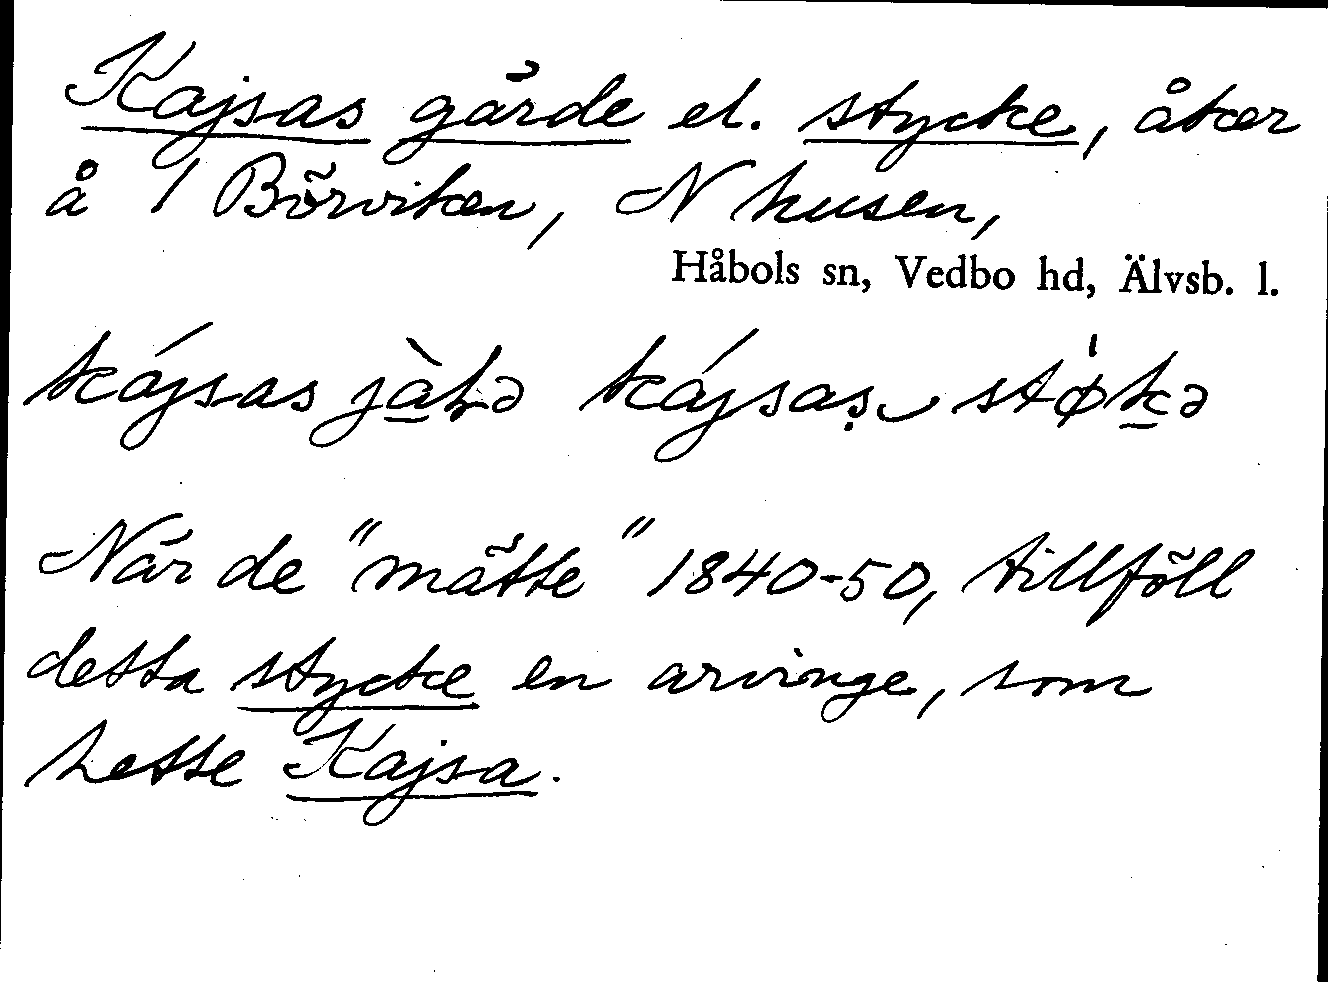 Kajsas gärde el. stycke, åker
å 1 Börviken, N husen,
Håbols sn, Vedbo hd, Älvsb. l.
När de "mätte" 1840-50, tillföll
detta stycke en arvinge, som
hette Kajsa.